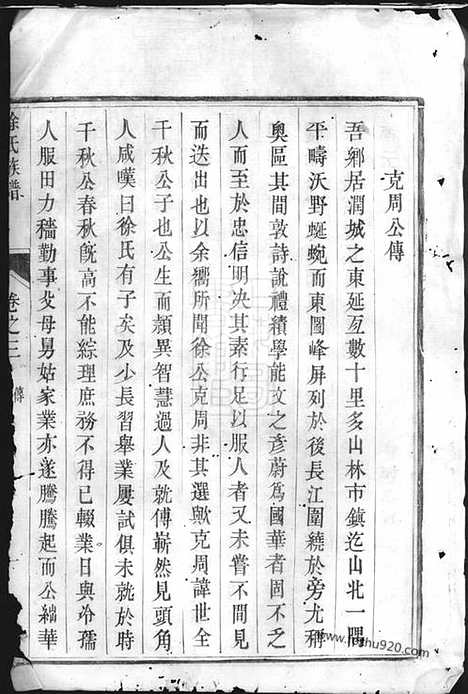 克周公傳
吾鄉居潤城之東延亙數十里多山林市鎮迄山北一隅
平疇沃野蜿蜒而東圌峰屏列於後長江圍繞於旁尤稱
奧區其間敦詩說禮績學能文之彥蔚為國華者固不乏
人而至於忠信明決其素行足以服人者又未嘗不間見
而迭出也以余嚮所聞徐公克周非其選歟克周諱世全
千秋公子也公生而穎異智慧過人及就傅嶄然見頭角
人咸嘆曰徐氏有子矣及少長習舉業屢試俱未就於時
千秋公春秋旣高不能綜理庶務不得已輟業日與冷孺
人服田力穡勤事父母舅姑家業亦遂騰騰起而公編華
徐氏族譜
卷之三
傳